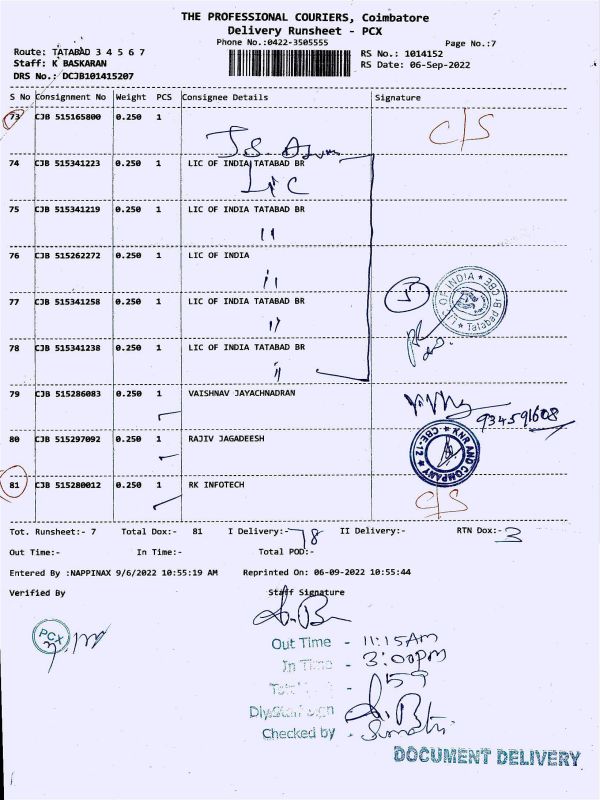 THE PROFESSIONAL COURIERS, Coimbatore
Delivery Runsheet - PCX
Phone No.:0422-3505555 Page No.:7
Route: TATABAD 3 4 5 6 7 RS No.: 1014152
Staff: K BASKARAN RS Date: 06-Sep-2022
DRS No.: DCJB101415207
S No Consignment No Weight PCS Consignee Details Signature
73 CJB 515165800 0.250 1 C/S
74 CJB 515341223 0.250 1 LIC OF INDIA TATABAD BR
LIC
75 CJB 515341219 0.250 1 LIC OF INDIA TATABAD BR
76 CJB 515262272 0.250 1 LIC OF INDIA
77 CJB 515341258 0.250 1 LIC OF INDIA TATABAD BR
5
78 CJB 515341238 0.250 1 LIC OF INDIA TATABAD BR
79 CJB 515286083 0.250 1 VAISHNAV JAYACHNADRAN
80 CJB 515297092 0.250 1 RAJIV JAGADEESH
KNR AND COMPANY ★ CBE-12 ★
81 CJB 515280012 0.250 1 RK INFOTECH C/S
Tot. Runsheet:- 7 Total Dox:- 81 I Delivery:- 78 II Delivery:- RTN Dox:- 3
Out Time:- In Time:- Total POD:-
Entered By :NAPPINAX 9/6/2022 10:55:19 AM Reprinted On: 06-09-2022 10:55:44
Verified By Staff Signature
PCX
Out Time - 11:15AM
In Time - 3:00PM
Checked by -
DOCUMENT DELIVERY